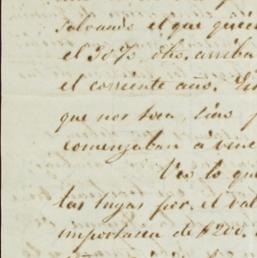 salvando el que quie
el 30% dho. arriba
el corriente año.
que nos toca,
comenzaban á ven
Veo lo qu
las suyas por el val
importancia de $200.